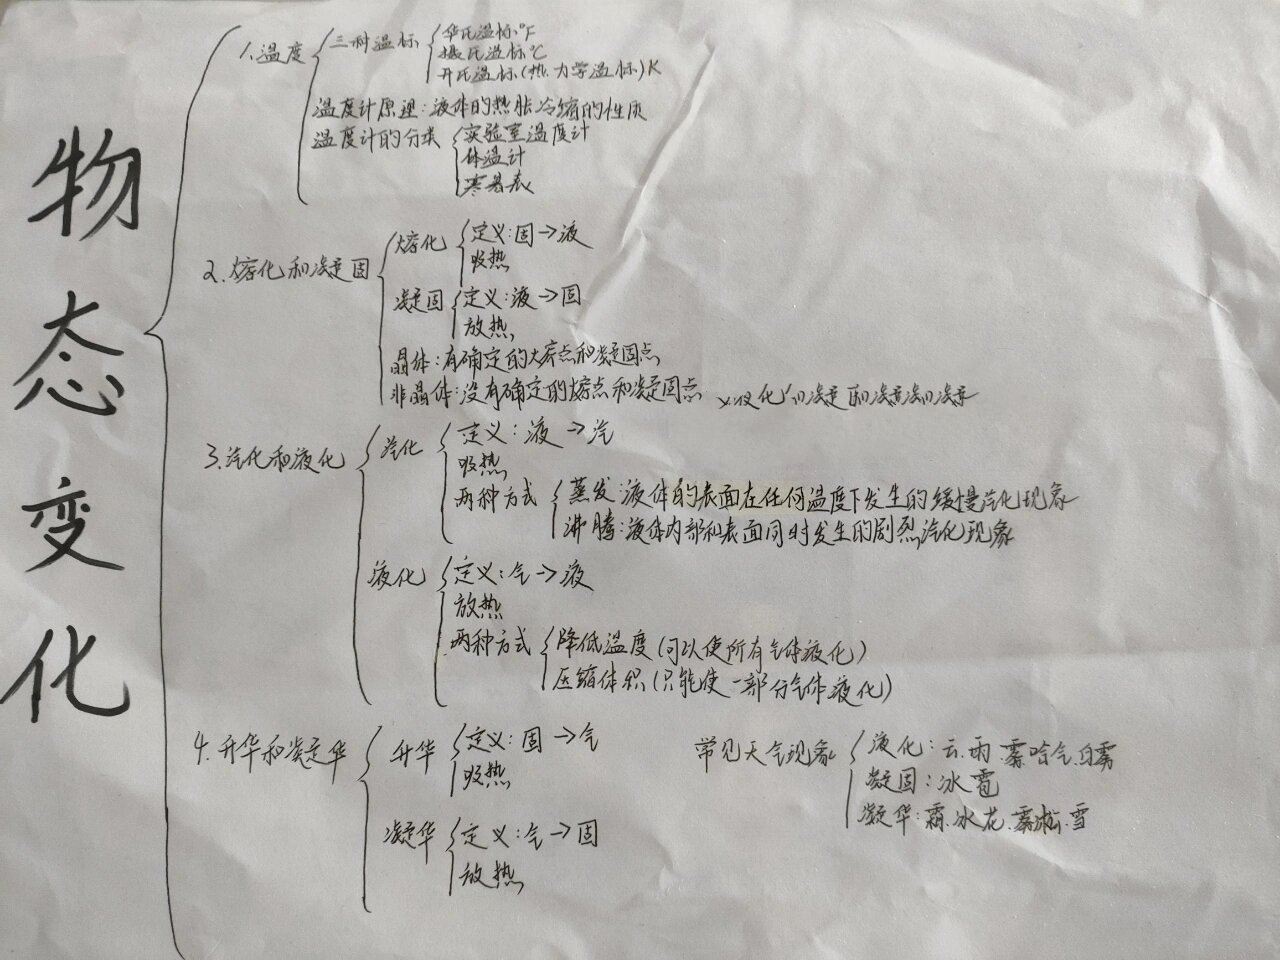 物态变化
1.温度
三种温标
华氏温标℉
摄氏温标℃
开氏温标(热力学温标)K
温度计原理:液体的热胀冷缩的性质
温度计的分类
实验室温度计
体温计
寒暑表
2.熔化和凝固
熔化
定义:固→液
吸热
凝固
定义:液→固
放热
晶体:有确定的熔点和凝固点
非晶体:没有确定的熔点和凝固点
3.汽化和液化
汽化
定义:液→汽
吸热
两种方式
蒸发:液体的表面在任何温度下发生的缓慢汽化现象
沸腾:液体内部和表面同时发生的剧烈汽化现象
液化
定义:气→液
放热
两种方式
降低温度(可以使所有气体液化)
压缩体积(只能使一部分气体液化)
4.升华和凝华
升华
定义:固→气
吸热
凝华
定义:气→固
放热
常见天气现象
液化:云.雨.雾哈气.白雾
凝固:冰雹
凝华:霜.冰花.雾凇.雪